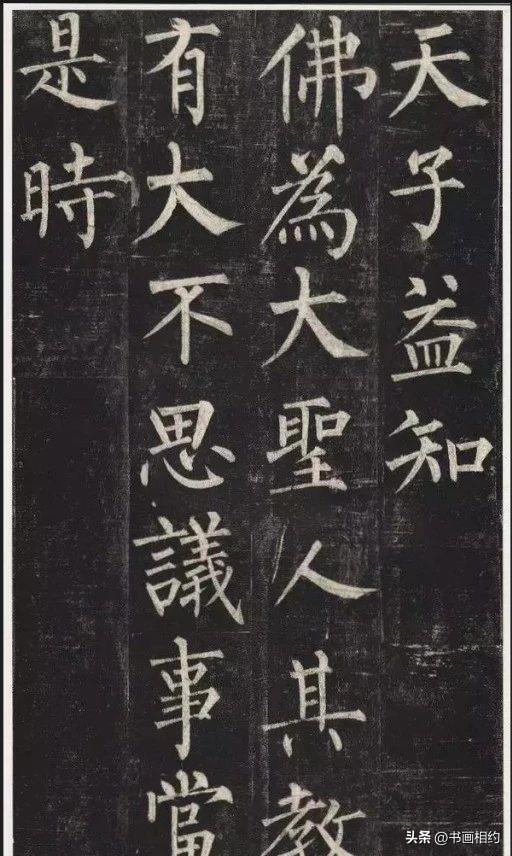 天子益知
佛為大聖人其教
有大不思議事當
是時
头条 @书画相约